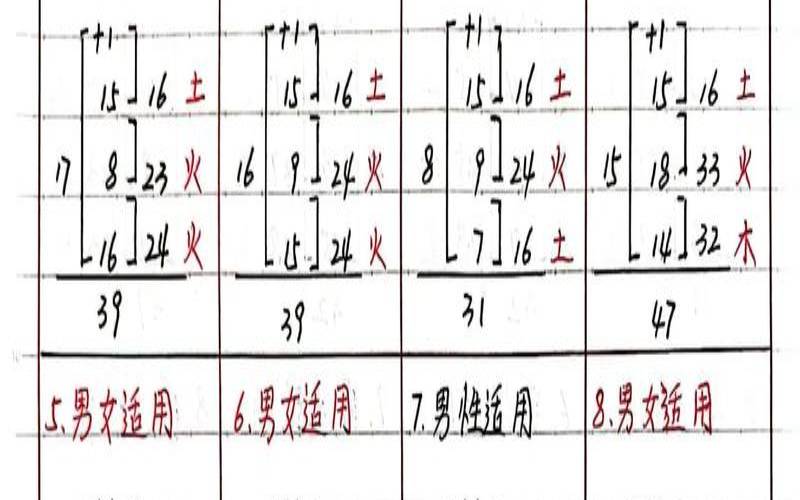 +1 +1 +1 +1
15 16 土 15 16 土 15 16 土 15 16 土
17 8 23 火 16 9 24 火 8 9 24 火 15 18 33 火
16 24 火 15 24 火 7 16 土 14 32 木
39 39 31 47
5.男女适用 6.男女适用 7.男性适用 8.男女适用